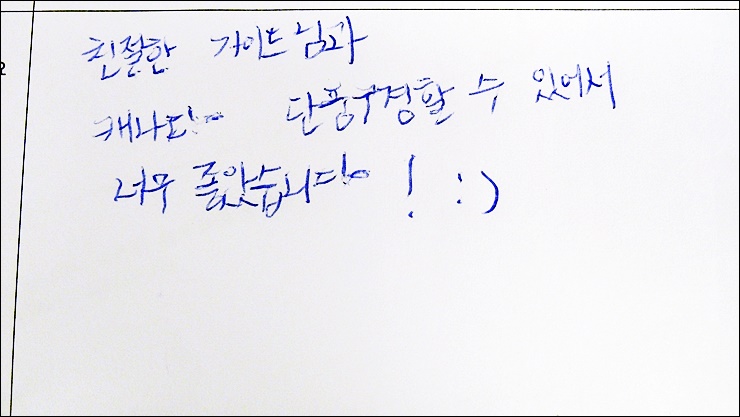 친절한 가이드님과
캐나다 단풍구경할 수 있어서
너무 좋았습니다! :)